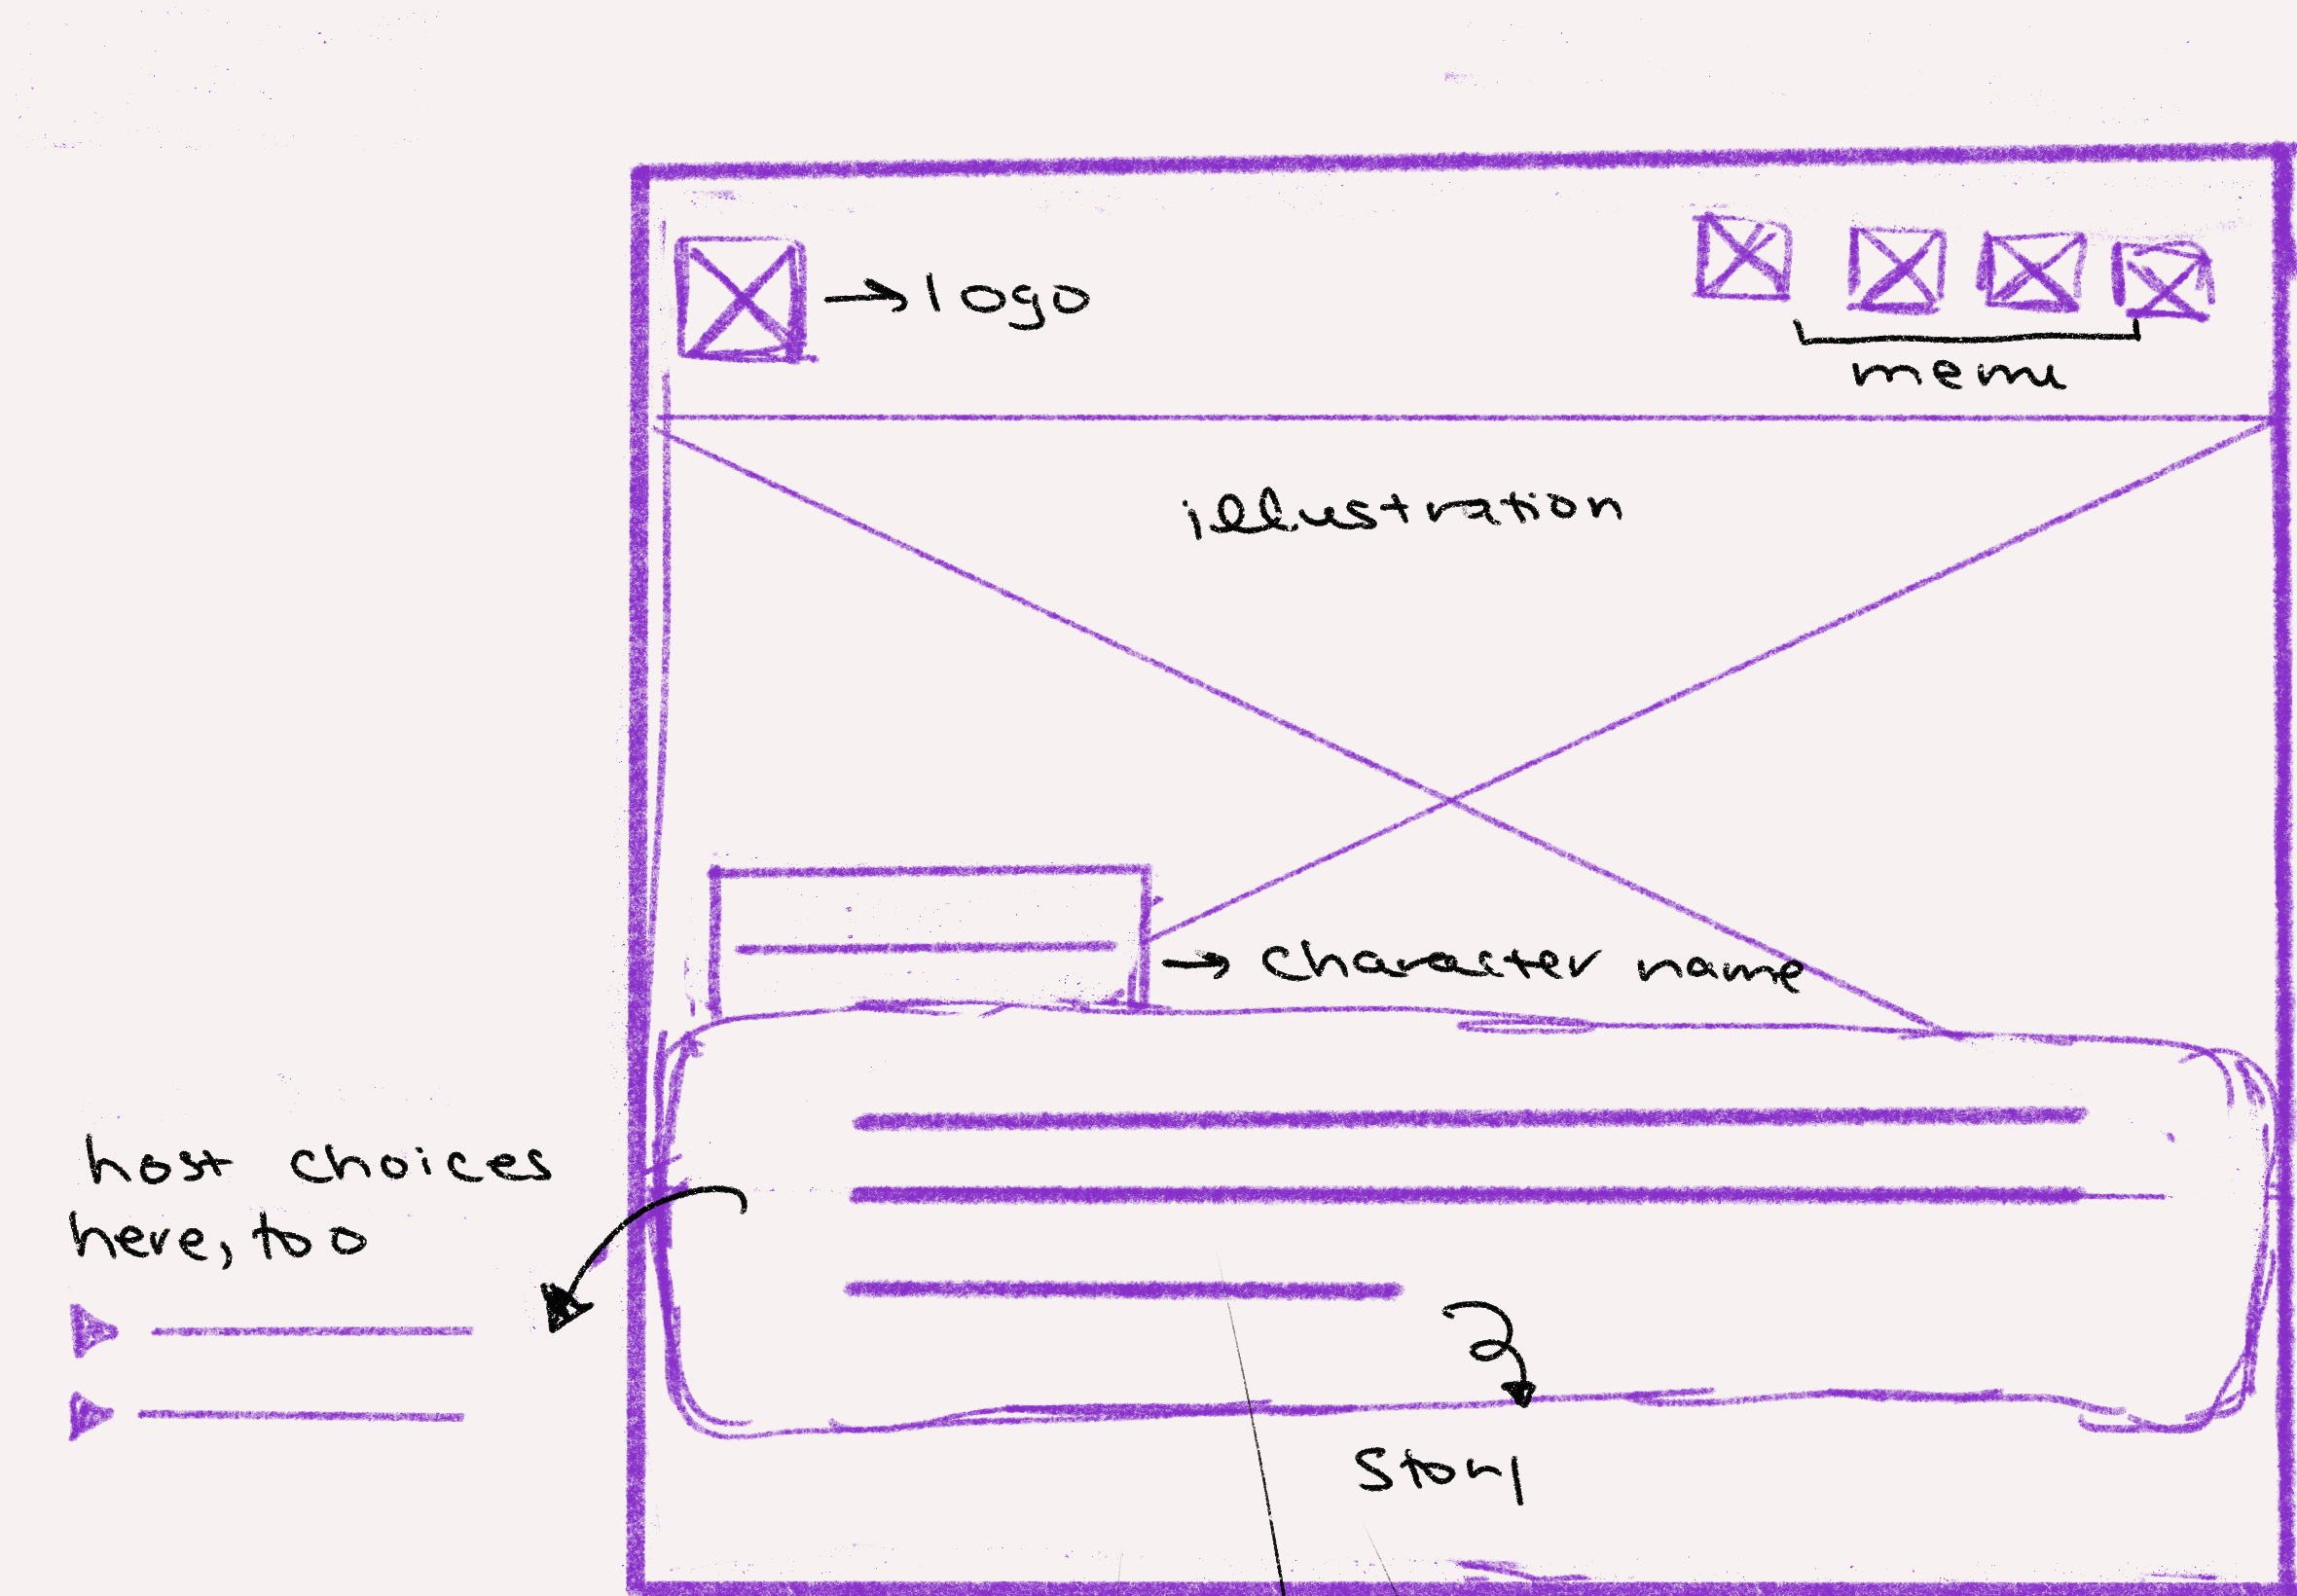 logo
menu
illustration
character name
host choices
here, too
story